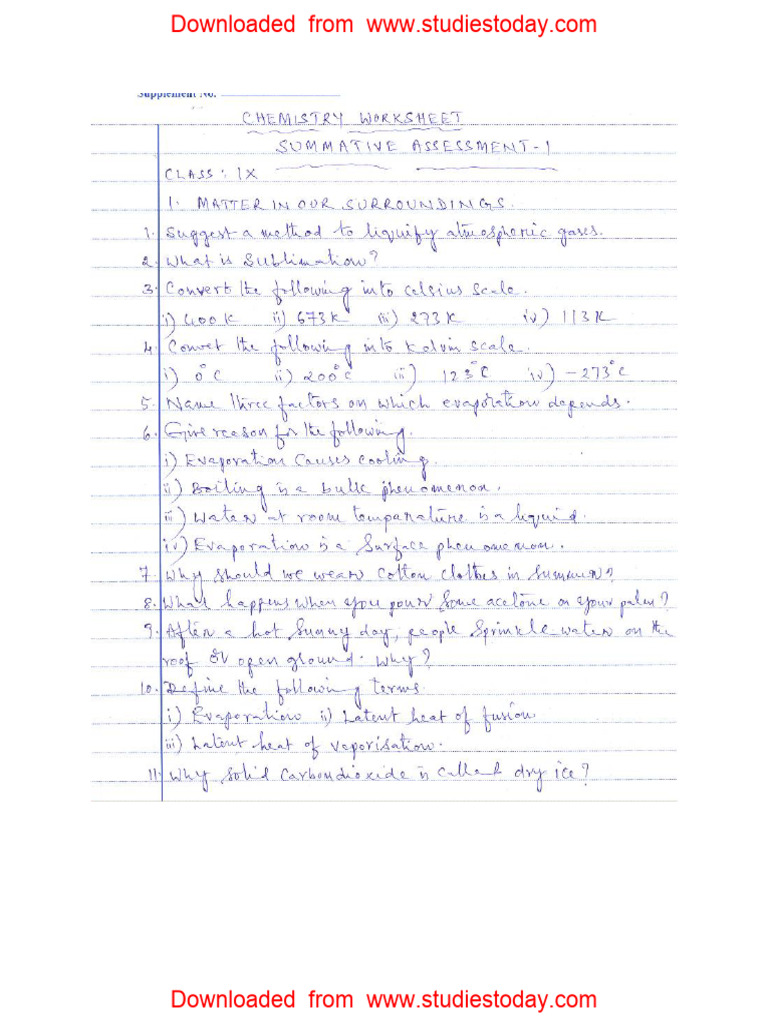 Downloaded from www.studiestoday.com
Supplement No.
CHEMISTRY WORKSHEET
SUMMATIVE ASSESSMENT-1
CLASS: IX
1. MATTER IN OUR SURROUNDINGS.
1. Suggest a method to liquify atmospheric gases.
2. What is Sublimation?
3. Convert the following into celsius scale.
i) 400K ii) 673K iii) 273K iv) 113K
4. Convet the following into Kelvin scale.
i) 0°C ii) 200°C iii) 123°C iv) -273°C
5. Name three factors on which evaporation depends.
6. Give reason for the following.
i) Evaporation causes cooling.
ii) Boiling is a bulk phenomenon.
iii) Water at room temparature is a liquid.
iv) Evaporation is a Surface phenomenon.
7. Why should we wear cotton clothes in Summer?
8. What happens when you pour Some acetone on your palm?
9. After a hot Sunny day, people Sprinkle water on the
roof or open ground. Why?
10. Define the following terms.
i) Evaporation ii) Latent heat of fusion.
iii) Latent heat of vaporisation.
11. Why Solid Carbondioxide is called dry ice?
Downloaded from www.studiestoday.com